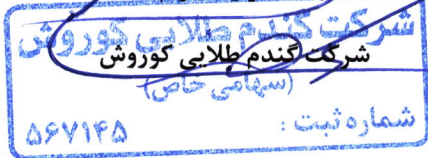 شرکت گندم طلایی کوروش
شرکت گندم طلایی کوروش
(سهامی خاص)
شماره ثبت :
۵۶۷۱۴۵